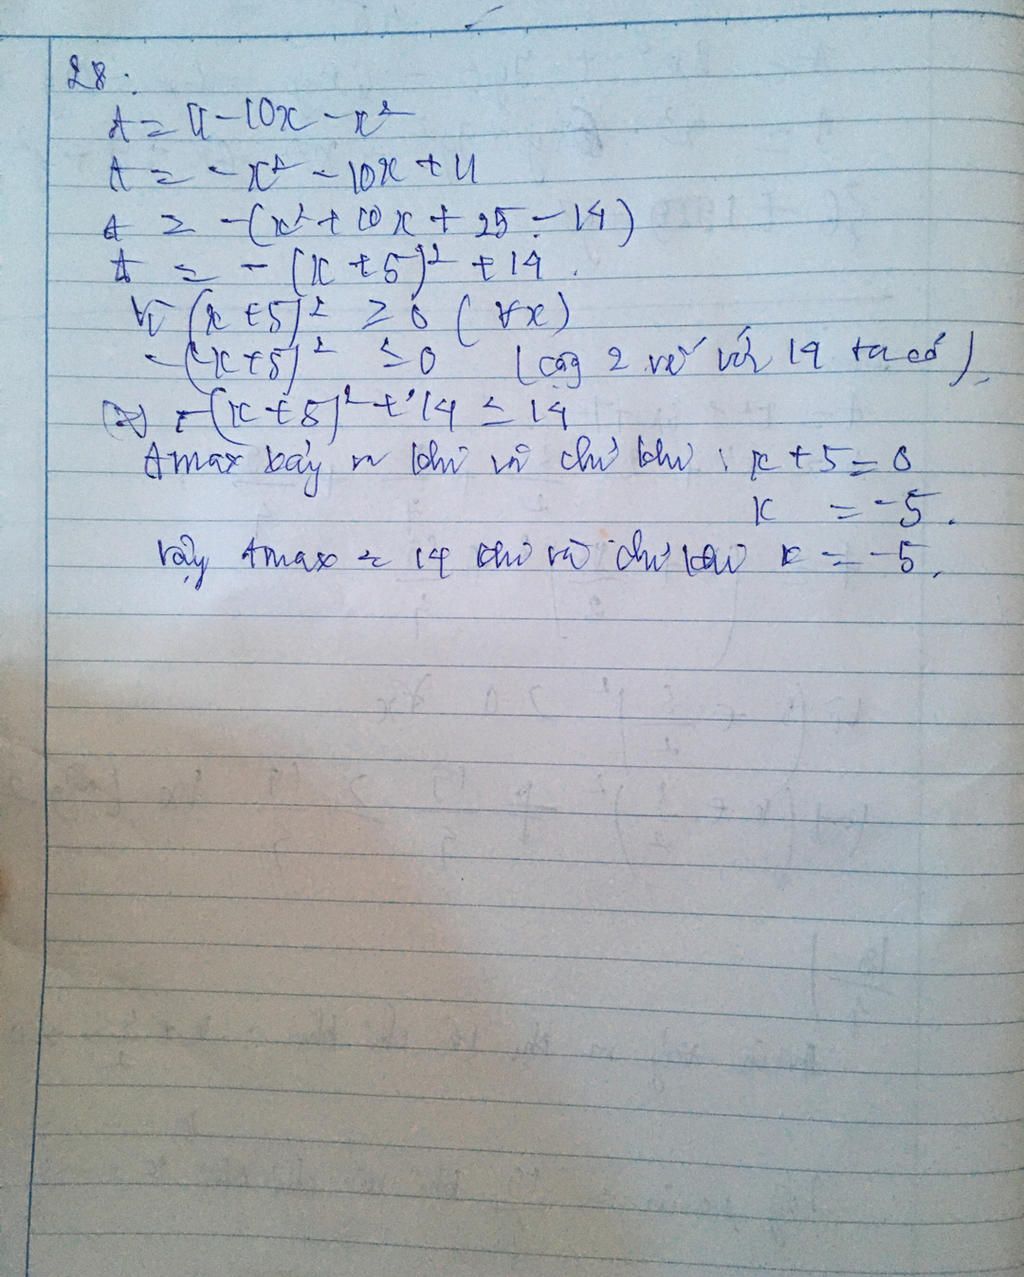 28:
A = 11 - 10x - x²
A = -x² - 10x + 11
A = -(x² + 10x + 25 - 14)
A = -(x + 5)² + 14.
Vì (x + 5)² ≥ 0 (∀x)
-(x + 5)² ≤ 0 (cộg 2 vế với 14 ta có).
(=) -(x + 5)² + 14 ≤ 14
Amax xảy ra khi và chỉ khi: x + 5 = 0
x = -5.
Vậy Amax = 14 khi và chỉ khi x = -5.